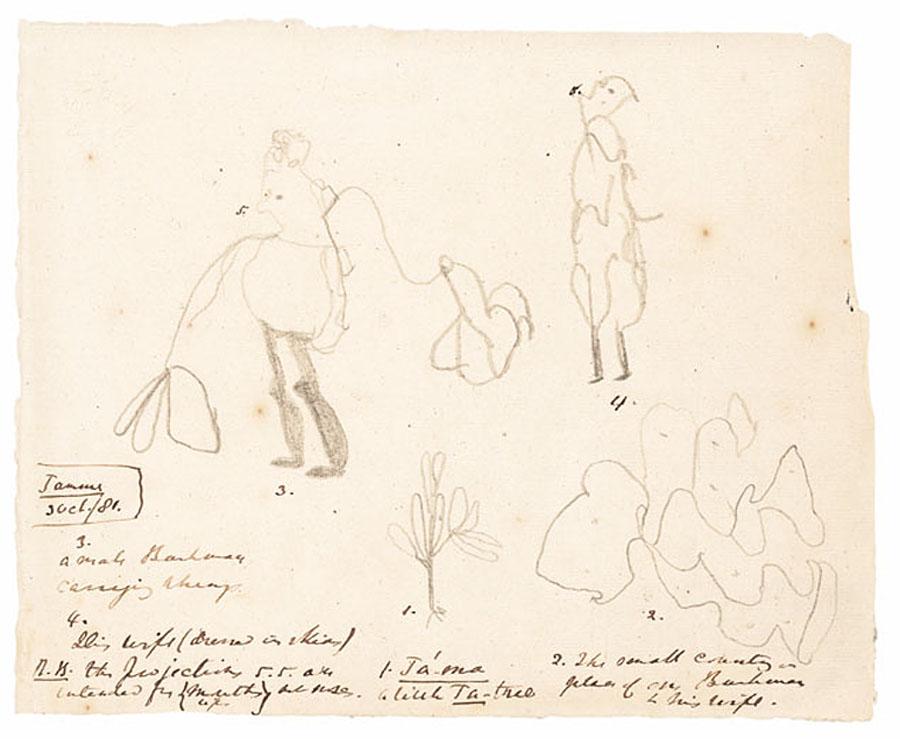 5.
5.
3.
4.
1.
2.
Tamme
3 Oct./81.
3.
a male Bushman
carrying things.
4.
His wife (dressed in skins)
N.B. the projections 5.5. are
intended for (mouths) not noses.
1. Tá-ma
a little Ta-tree
2. The small country or
place of one Bushman
& his wife.